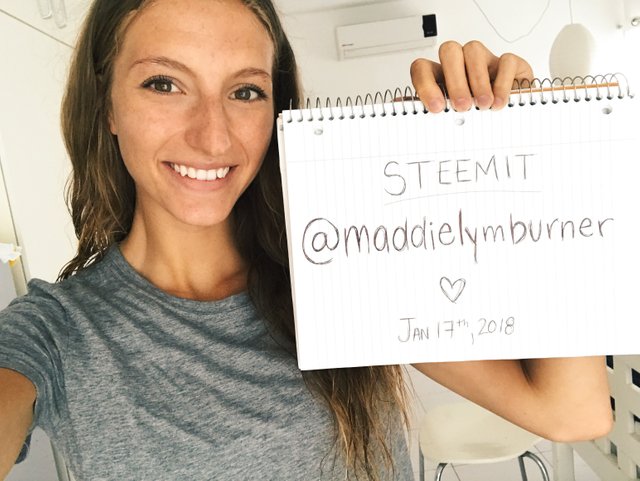 STEEMIT
@maddielymburner
♡
JAN 17th, 2018